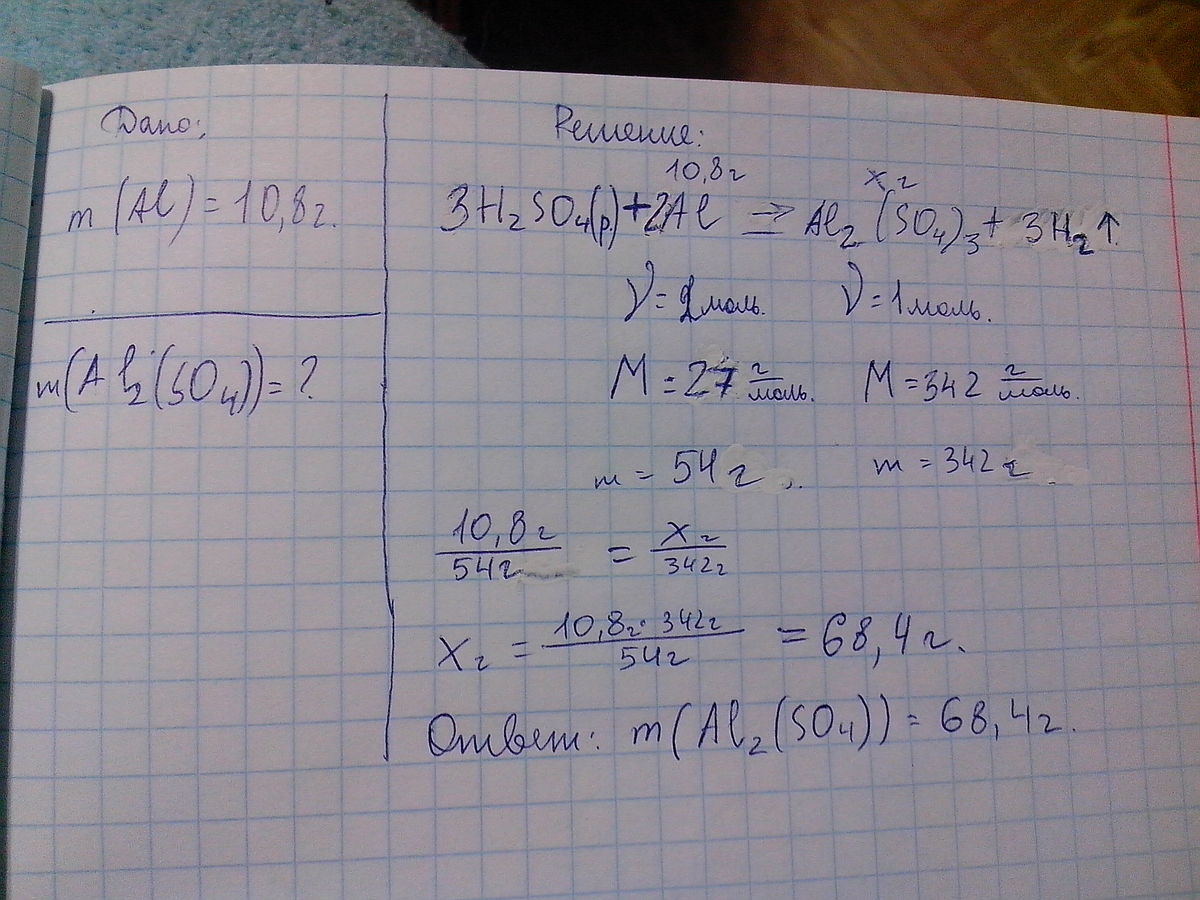 Дано:
m (Al) = 10,8 г.
m(Al₂(SO₄)) = ?
Решение:
10,8 г x г
3H₂SO₄(р.) + 2Al => Al₂(SO₄)₃ + 3H₂↑
ν = 2 моль. ν = 1 моль.
M = 27 г/моль. M = 342 г/моль.
m = 54 г m = 342 г
10,8 г/54 г = x г/342 г
x г = 10,8 г · 342 г/54 г = 68,4 г.
Ответ: m(Al₂(SO₄)) = 68,4 г.